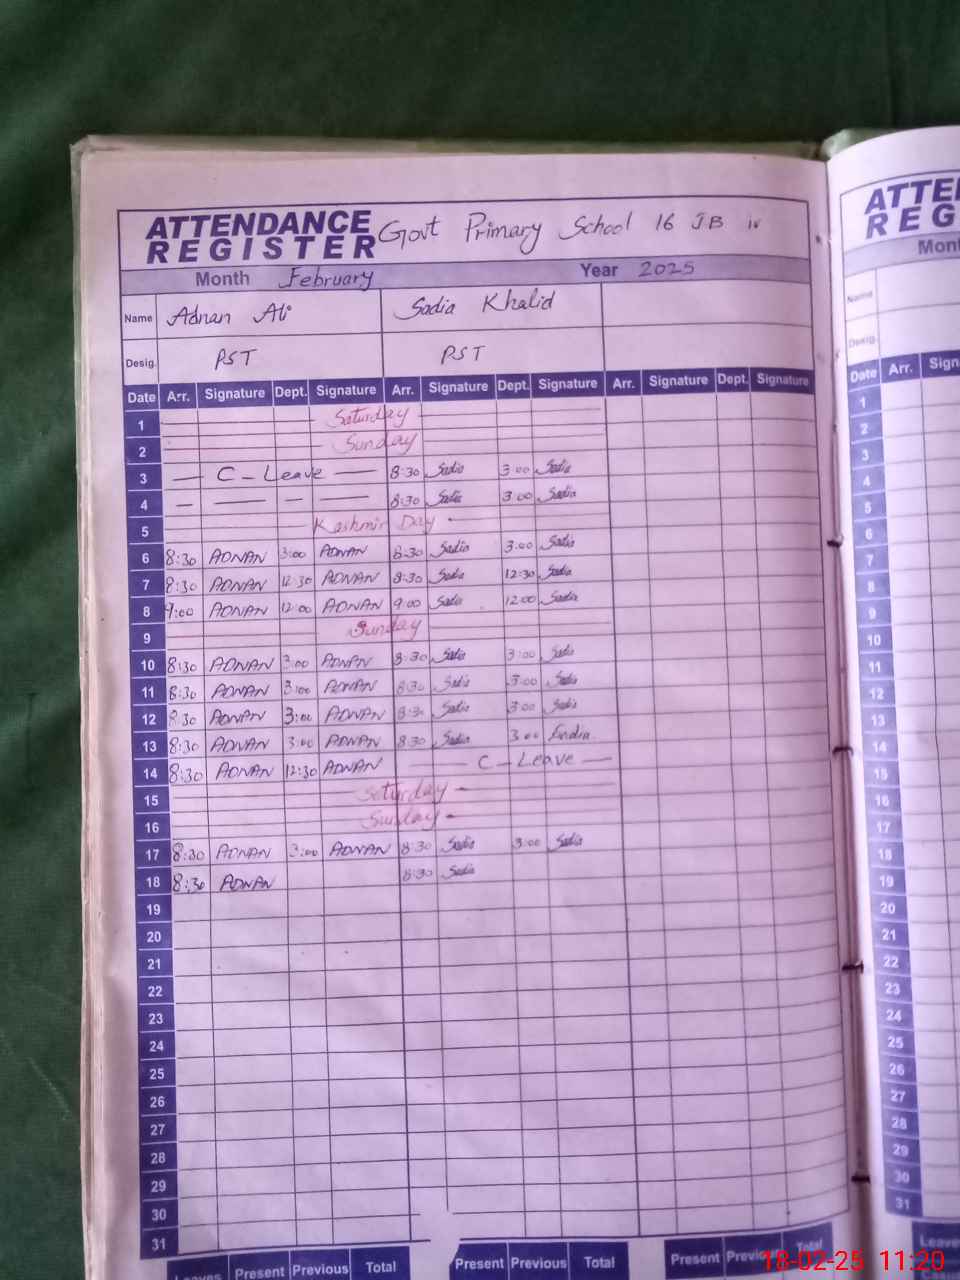 ATTENDANCE REGISTER Govt Primary School 16 JB
Month February Year 2025
Name Adnan Ali Sadia Khalid
Desig. PST PST
Date Arr. Signature Dept. Signature Arr. Signature Dept. Signature Arr. Signature Dept. Signature
1 Saturday
2 Sunday
3 C-Leave 8:30 Sadia 3:00 Sadia
4 8:30 Sadia 3:00 Sadia
5 Kashmir Day
6 8:30 ADNAN 3:00 ADNAN 8:30 Sadia 3:00 Sadia
7 8:30 ADNAN 12:30 ADNAN 8:30 Sadia 12:30 Sadia
8 9:00 ADNAN 12:00 ADNAN 9:00 Sadia 12:00 Sadia
9 Sunday
10 8:30 ADNAN 3:00 ADNAN 8:30 Sadia 3:00 Sadia
11 8:30 ADNAN 3:00 ADNAN 8:30 Sadia 3:00 Sadia
12 8:30 ADNAN 3:00 ADNAN 8:30 Sadia 3:00 Sadia
13 8:30 ADNAN 3:00 ADNAN 8:30 Sadia 3:00
14 8:30 ADNAN 12:30 ADNAN C-Leave
15 Saturday
16 Sunday
17 8:30 ADNAN 3:00 ADNAN 8:30 Sadia 3:00 Sadia
18 8:30 ADNAN 8:30 Sadia
19
20
21
22
23
24
25
26
27
28
29
30
31
Leaves Present Previous Total Present Previous Total Present Previous Total
ATTE
REG
Mont
Name
Desig.
Date Arr. Sign
1
2
3
4
5
6
7
8
9
10
11
12
13
14
15
16
17
18
19
20
21
22
23
24
25
26
27
28
29
30
31
Leaves
18-02-25 11:20